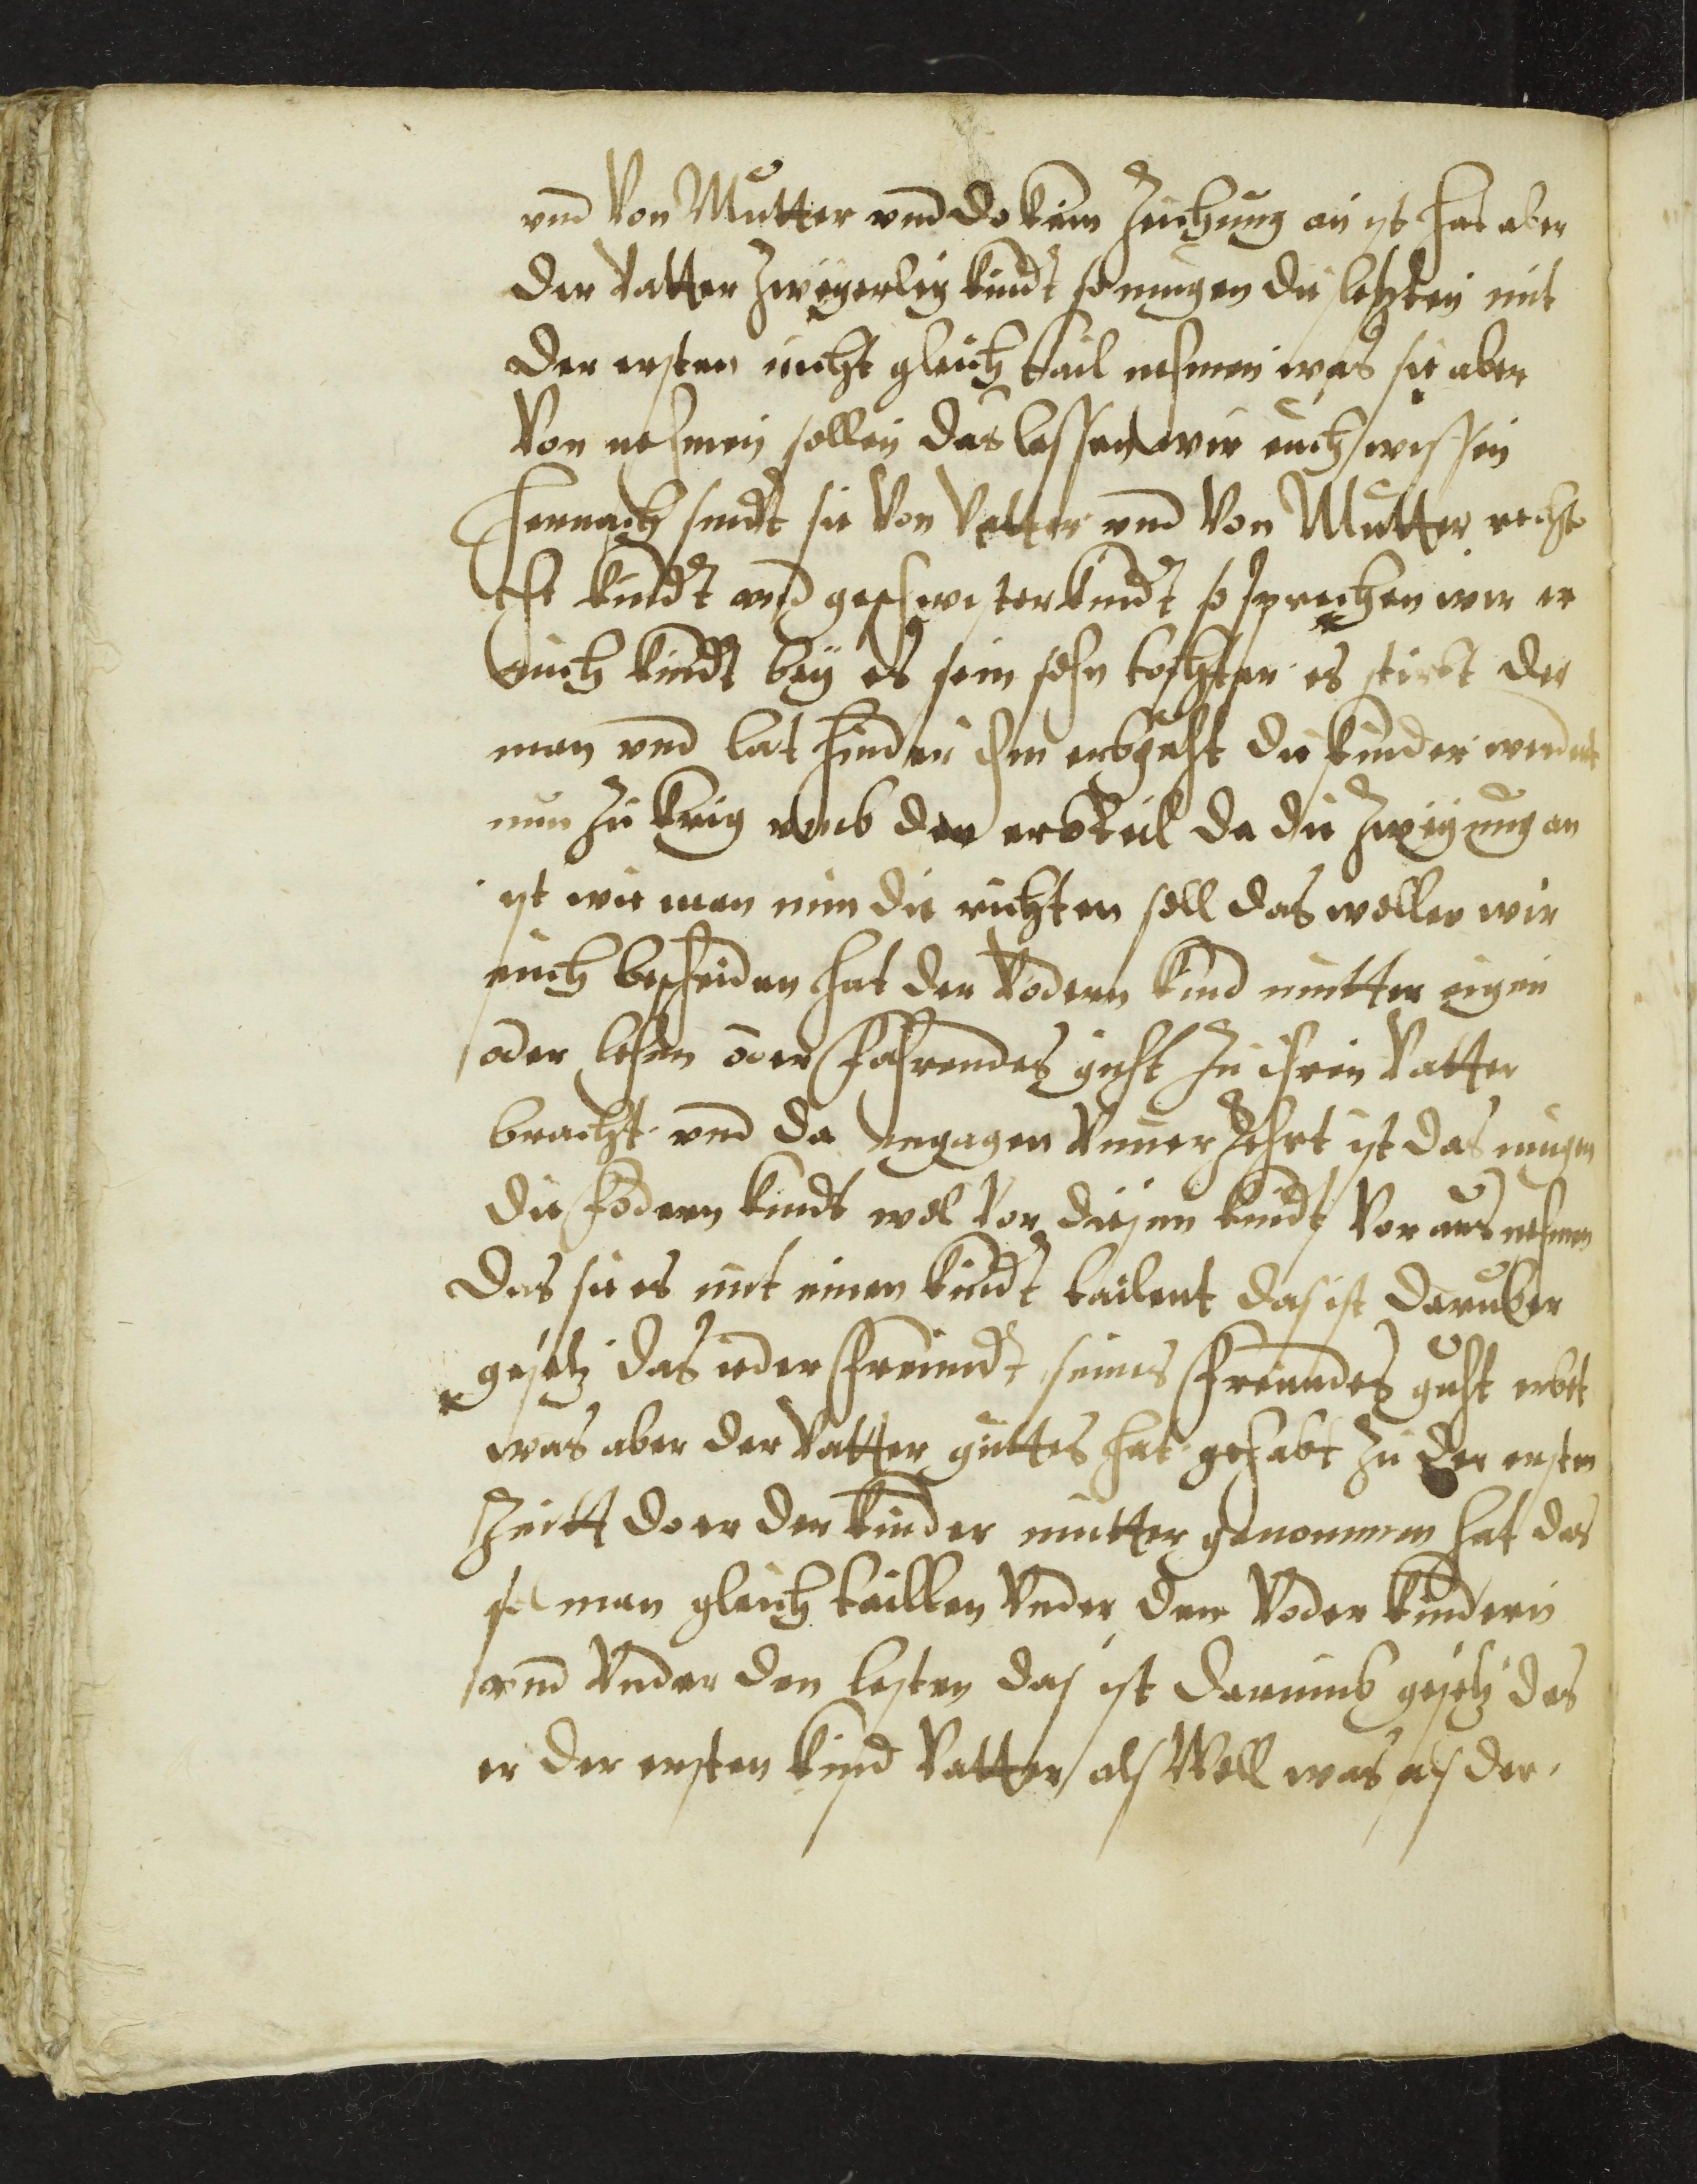 vnd von Mutter vnd do kein Zeichung an ist hat aber
der vatter zweyerley kindt so mugen die letzten mit
der ersten nicht gleich tail nehmen was sie aber
von nehmen sollen das lassen wir euch wissen
hernach sindt sie von vatter vnd von Mutter recht
Ehe kindt vnd geschwisterkindt so sprechen wir er
euch kindt bey es sein sohn tochter es stirbt der
man vnd lat hinder ihm erbguht die kinder werdent
nun zu krig vmb den erbteil da die Zweyung an
ist wie man nun die richten soll das wellen wir
euch bescheiden hat der vodern kind mutter eigen
oder lehen oder fahrendes guht zu ihren vatter
bracht vnd da engagen vnuerzehrt ist das mugen
die fodern kindt wol vor diesen kindt vor aus nehmen
das sie es mit einen kindt tailent das ist daruber
gesetz das ieder freundt seines freundes guht erbet
was aber der vatter guttes hat gehabt zu der ersten
Zeitt do er der kinder mutter genommen hat das
sol man gleich taillen vnder den voder kindern
vnd vnder den lesten das ist darumb gesetz das
er der ersten kind vatter als Woll was als der